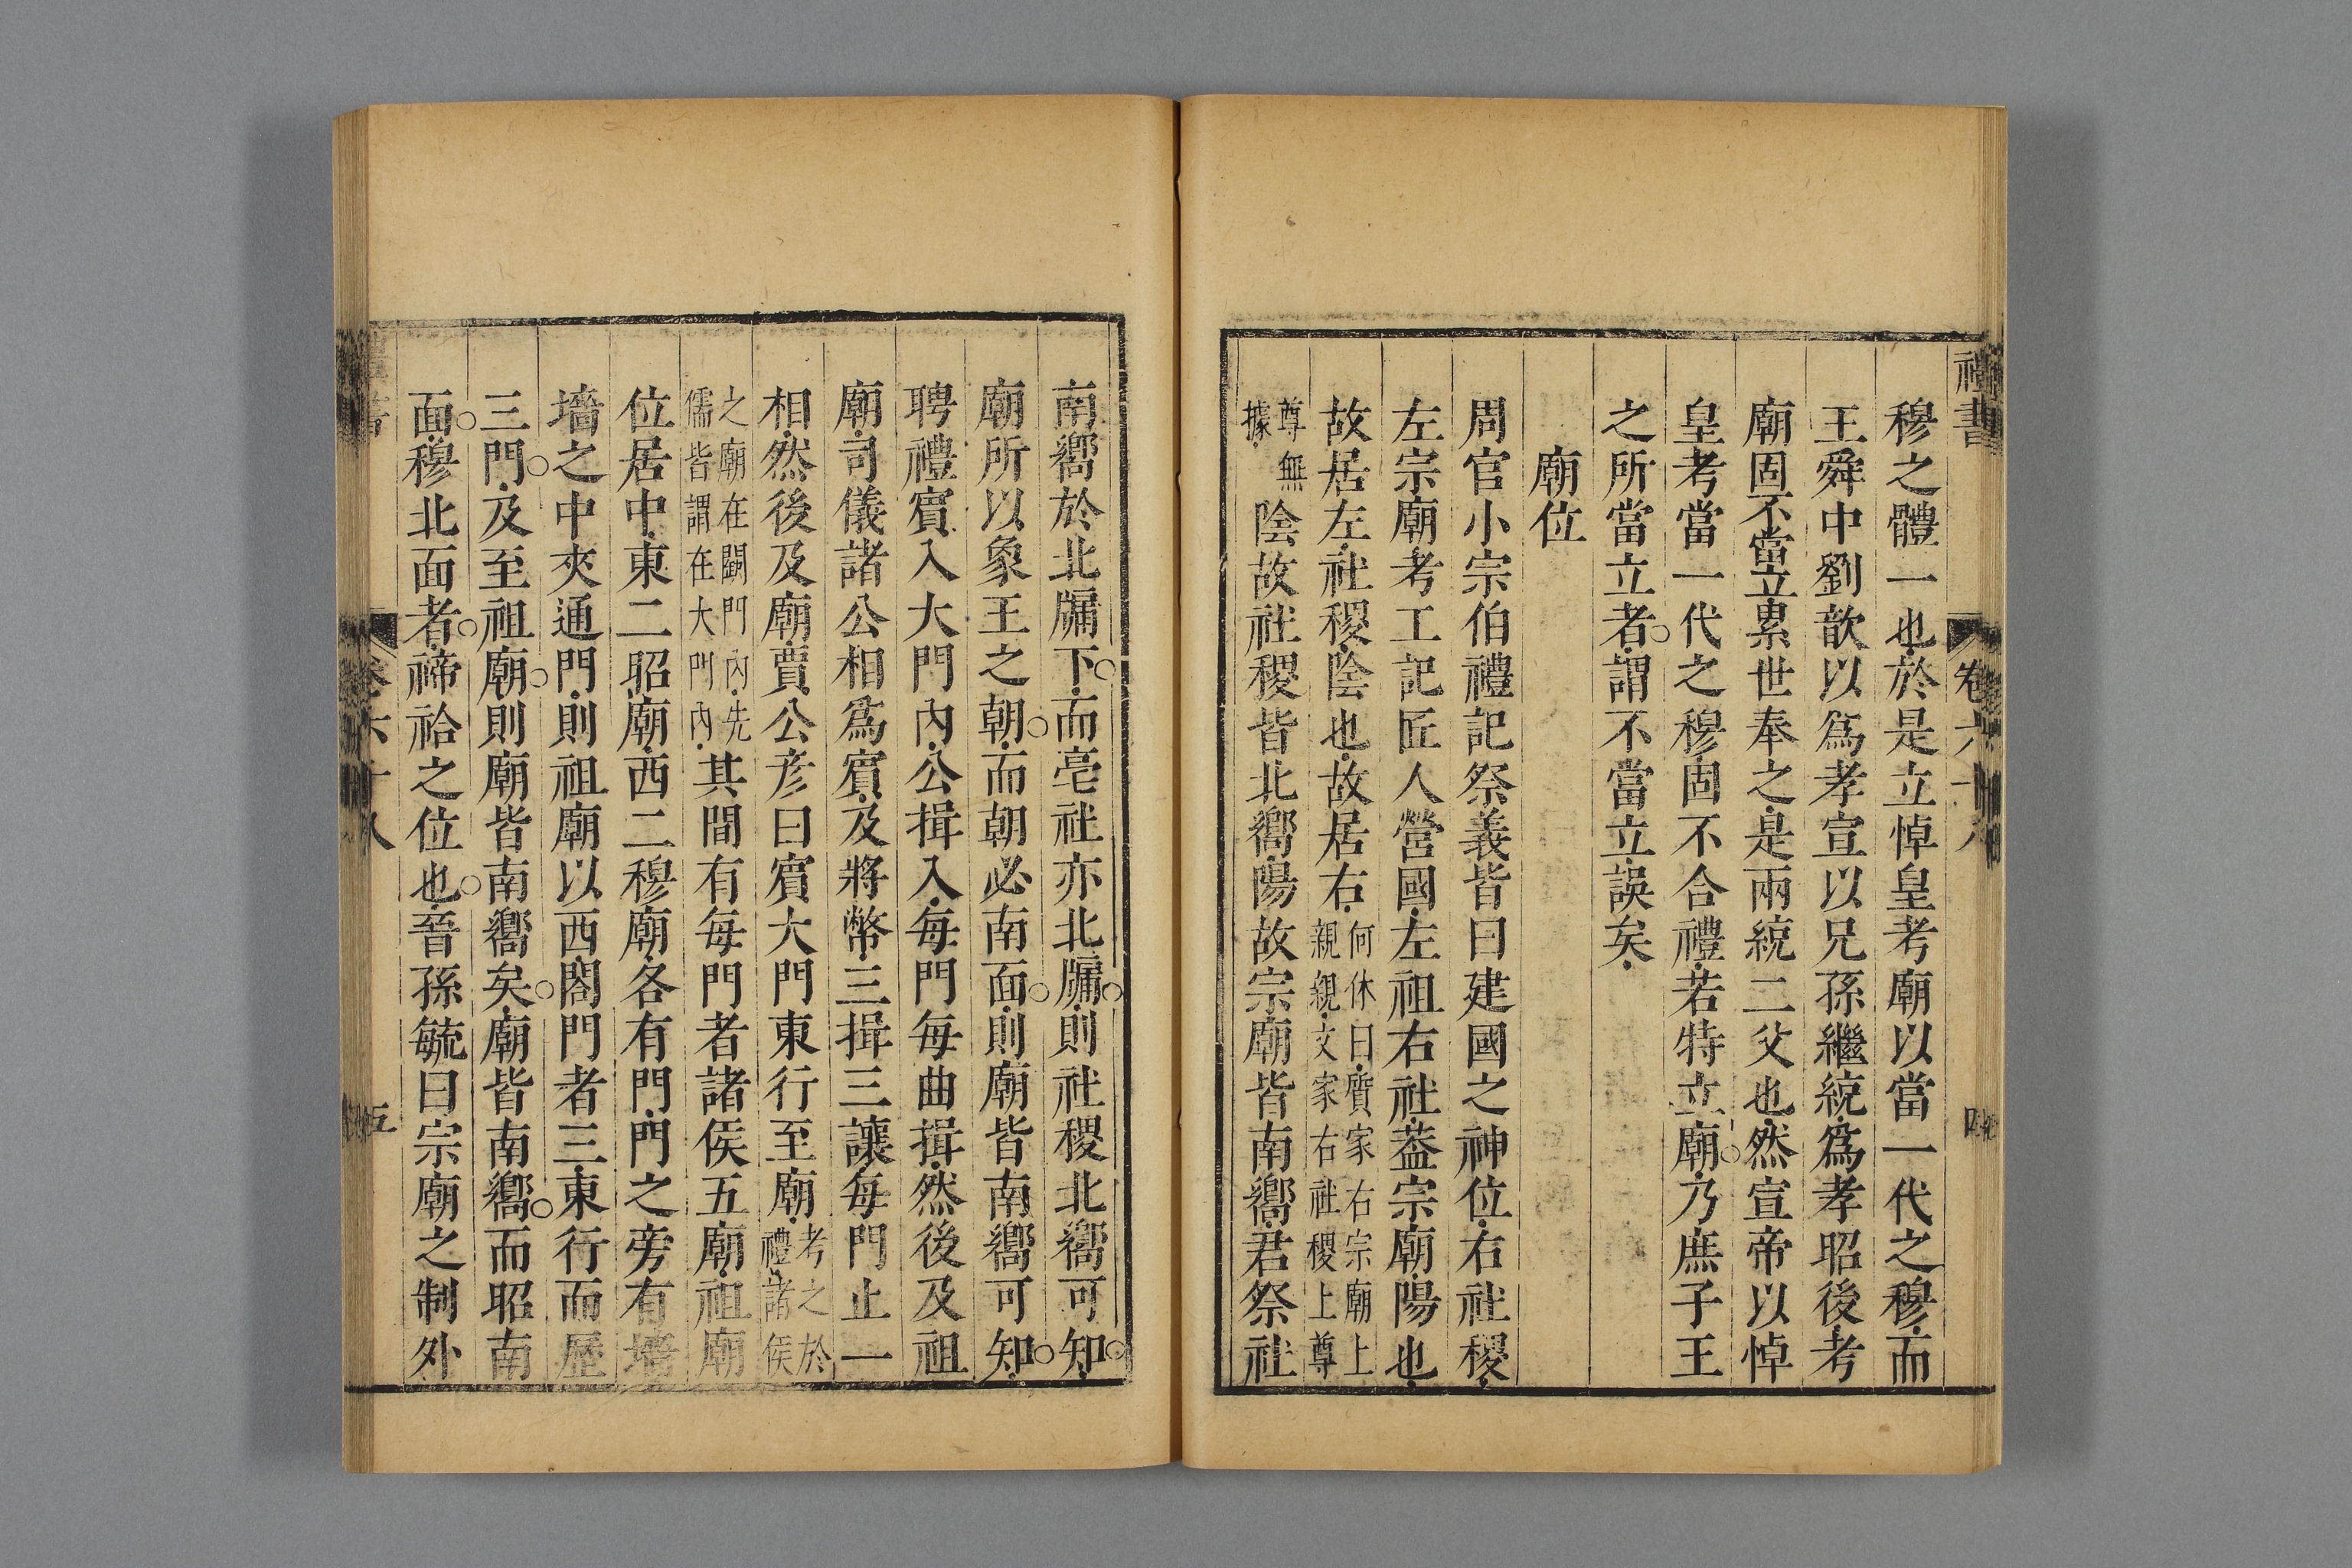 禮書 卷六十八 四
穆之體一也於是立悼皇考廟以當一代之穆而
王舜中劉歆以爲孝宣以兄孫繼統爲孝昭後考
廟固不當立累世奉之是兩統二父也然宣帝以悼
皇考當一代之穆固不合禮若特立廟乃庶子王
之所當立者謂不當立誤矣
廟位
周官小宗伯禮記祭義皆曰建國之神位右社稷
左宗廟考工記匠人營國左祖右社葢宗廟陽也
故居左社稷陰也故居右何休曰質家右宗廟上親親文家右社稷上尊
尊無據陰故社稷皆北嚮陽故宗廟皆南嚮君祭社
南嚮於北牖下而亳社亦北牖則社稷北嚮可知
廟所以象王之朝而朝必南面則廟皆南嚮可知
聘禮賓入大門內公揖入每門每曲揖然後及祖
廟司儀諸公相爲賓及將幣三揖三讓每門止一
相然後及廟賈公彦曰賓大門東行至廟考之於禮諸侯
之廟在闕門內先儒皆謂在大門內其間有每門者諸侯五廟祖廟
位居中東二昭廟西二穆廟各有門門之旁有墻
墻之中夾通門則祖廟以西閤門者三東行而歷
三門及至祖廟則廟皆南嚮矣廟皆南嚮而昭南
面穆北面者禘祫之位也晉孫毓曰宗廟之制外
卷六十八 五